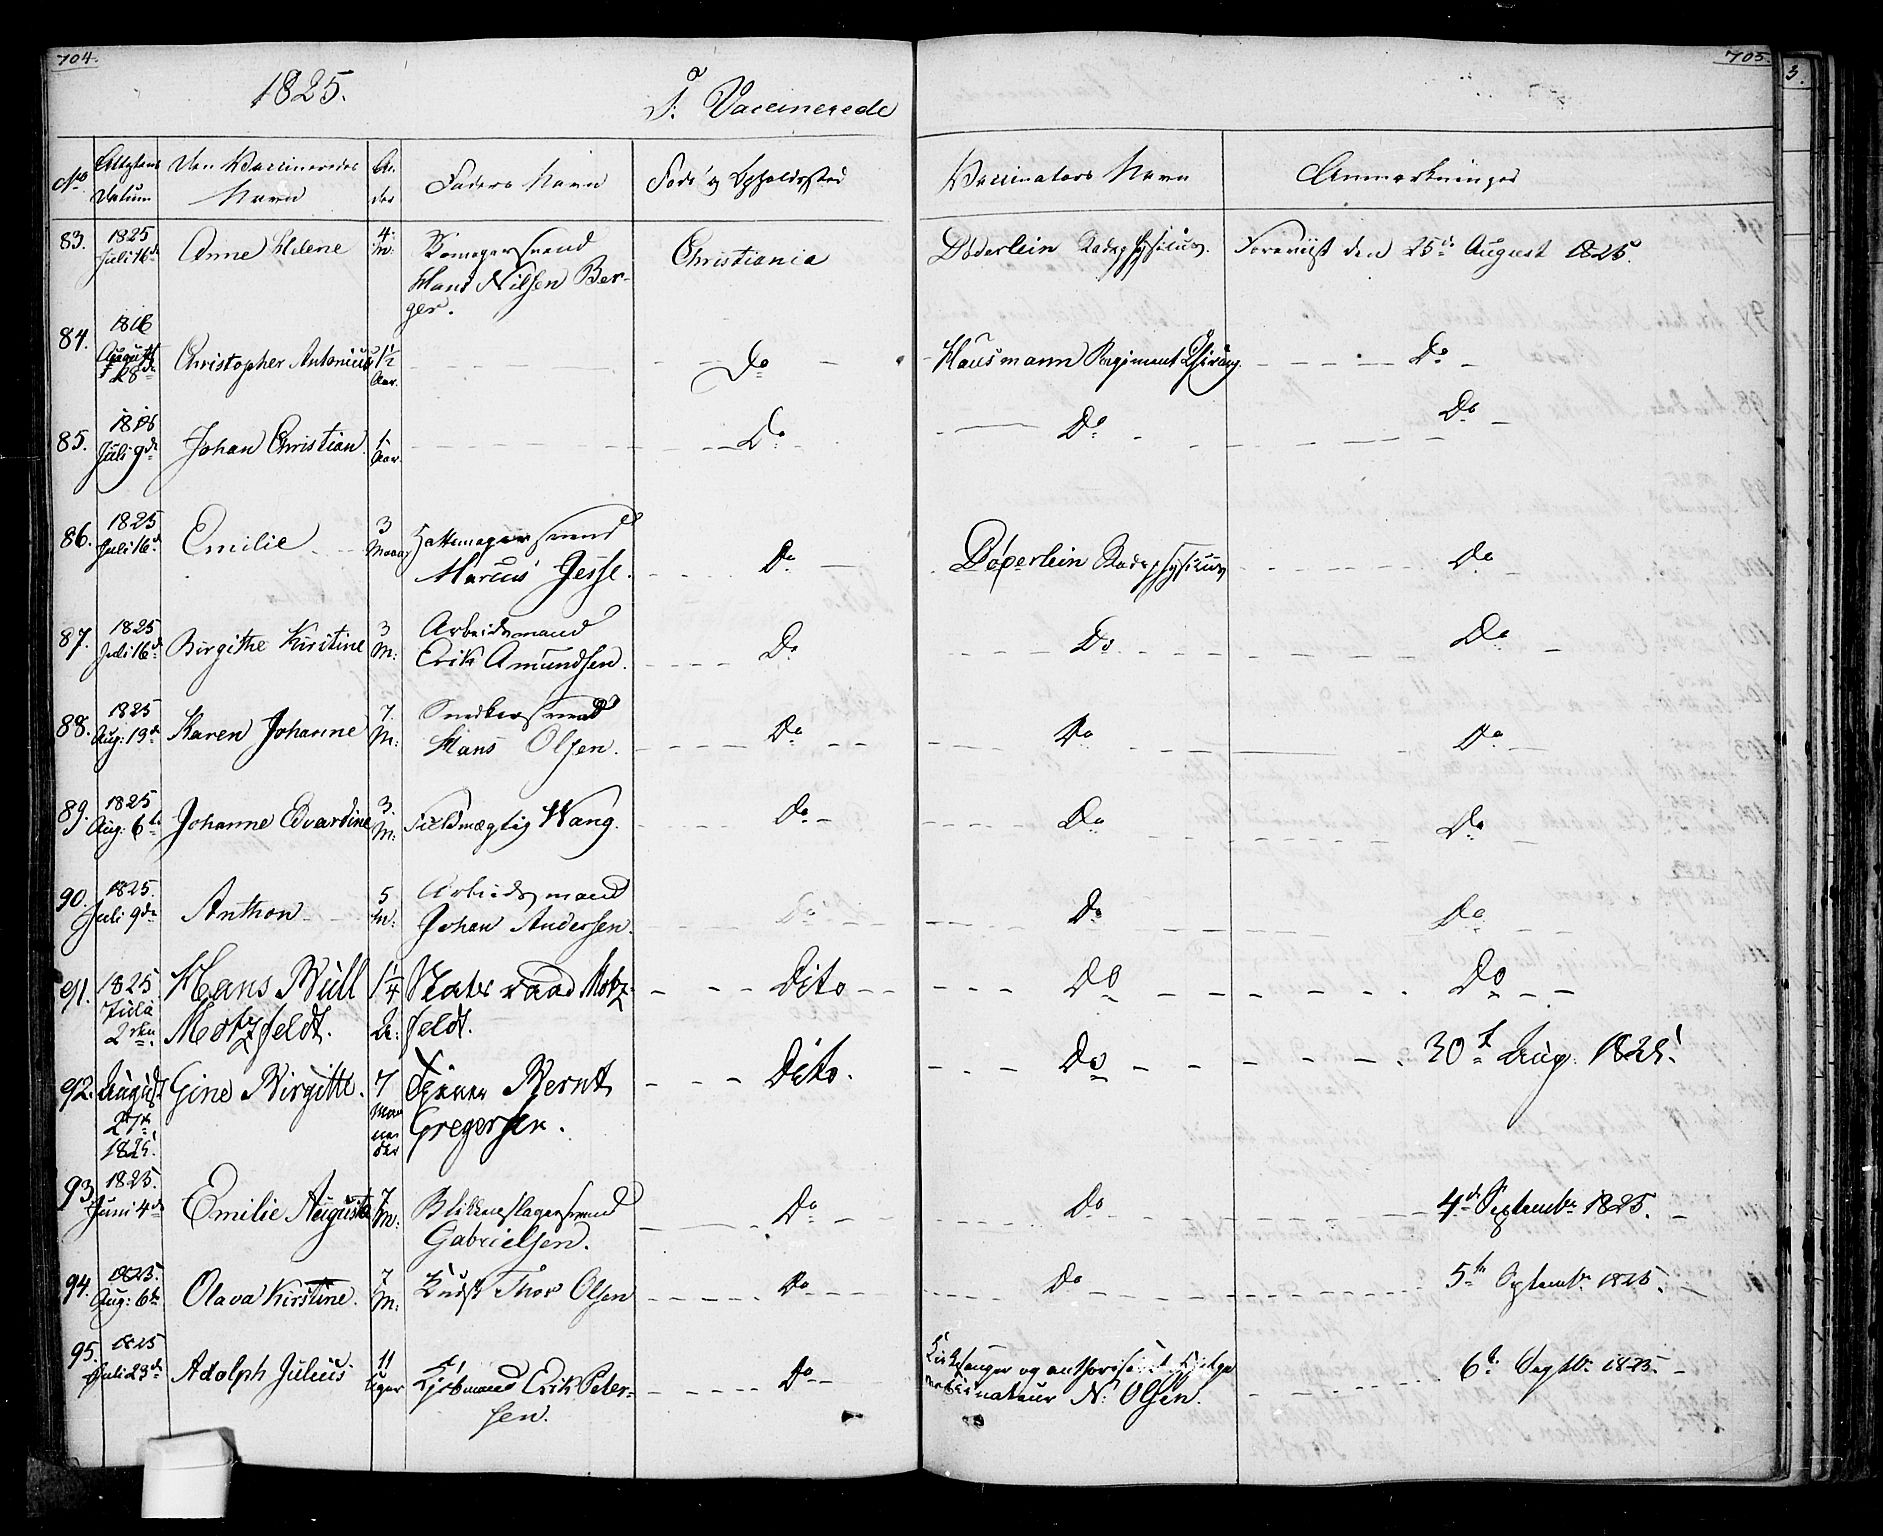 704.
1825.
F. Vaccinerede
No Attestens Datum Den Vaccineredes Navn Al- der Faders Navn Føde og Opholdssted
83. 1825 Juli 16de Anne Helene 4. M: Hans Nilsen Ber-
ger. Christiania
84. 1816 August 28de Christopher Antonius 1½ Aar. Do
85. 1816 Juli 9de Johan Christian 1 Aar. Do
86. 1825 Juli 16de Emilie 3 Maan Hattemagersvend
Marcus Jesse. Do
87. 1825 Juli 16de Birgithe Kirstine 3 M: Arbeidsmand
Erik Amundsen. Do
88. 1825 Aug: 13de Karen Johanne 7. M: Snedkersvend
Hans Olsen. Do
89. 1825 Aug: 6te Johanne Edvardine 3. M: Fuldmægtig Wang. Do
90. 1825. Juli 9de Anthon 5 M: Arbeidsmand
Johan Andersen. Do
91. 1825 Julii 2den Hans Bull
Motzfeldt. 1¼ A: Statsraad Motz-
feldt. Dito
92. August 27de 1825. Gine Birgitte. 7 Maa neder Bernt
Gregersen. Dito.
93. 1825. Juni 4de Emilie Auguste 7 M: Blikkenslagersvend
Gabrielsen. Do
94. 1825. Aug: 6te Olava Kirstine. 7 M: Kudsk Thor Olsen Do
95. 1825 Juli 23de Adolph Julius 11 Uger Kjøbmand Erik Peter-
sen. Do
705.
Vaccinators Navn Anmærkninger
Døderlein Radsphysicus. Foreviist den 25de August 1825.
Hausmann Regiment Chirurg. Do
Do Do
Døderlein Radsphysicus Do
Do Do
Do Do
Do Do
Do Do
Do Do
Do 30t Aug. 1825.
Do 4de September 1825.
Do 5te September 1825.
Kirkesanger og authoriseret Hjelpe
vaccinateur N: Olsen. 6te Septbr 1825.
3.